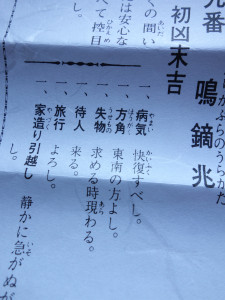 九番
鳴鏑兆
初凶末吉
くの間い
は安心な
べて控目
し。
一、病気 快復すべし。
一、方角 東南の方よし。
一、失物 求める時現わる。
一、待人 来る。
一、旅行 よろし。
一、家造り引越し 静かに急がぬが
し。